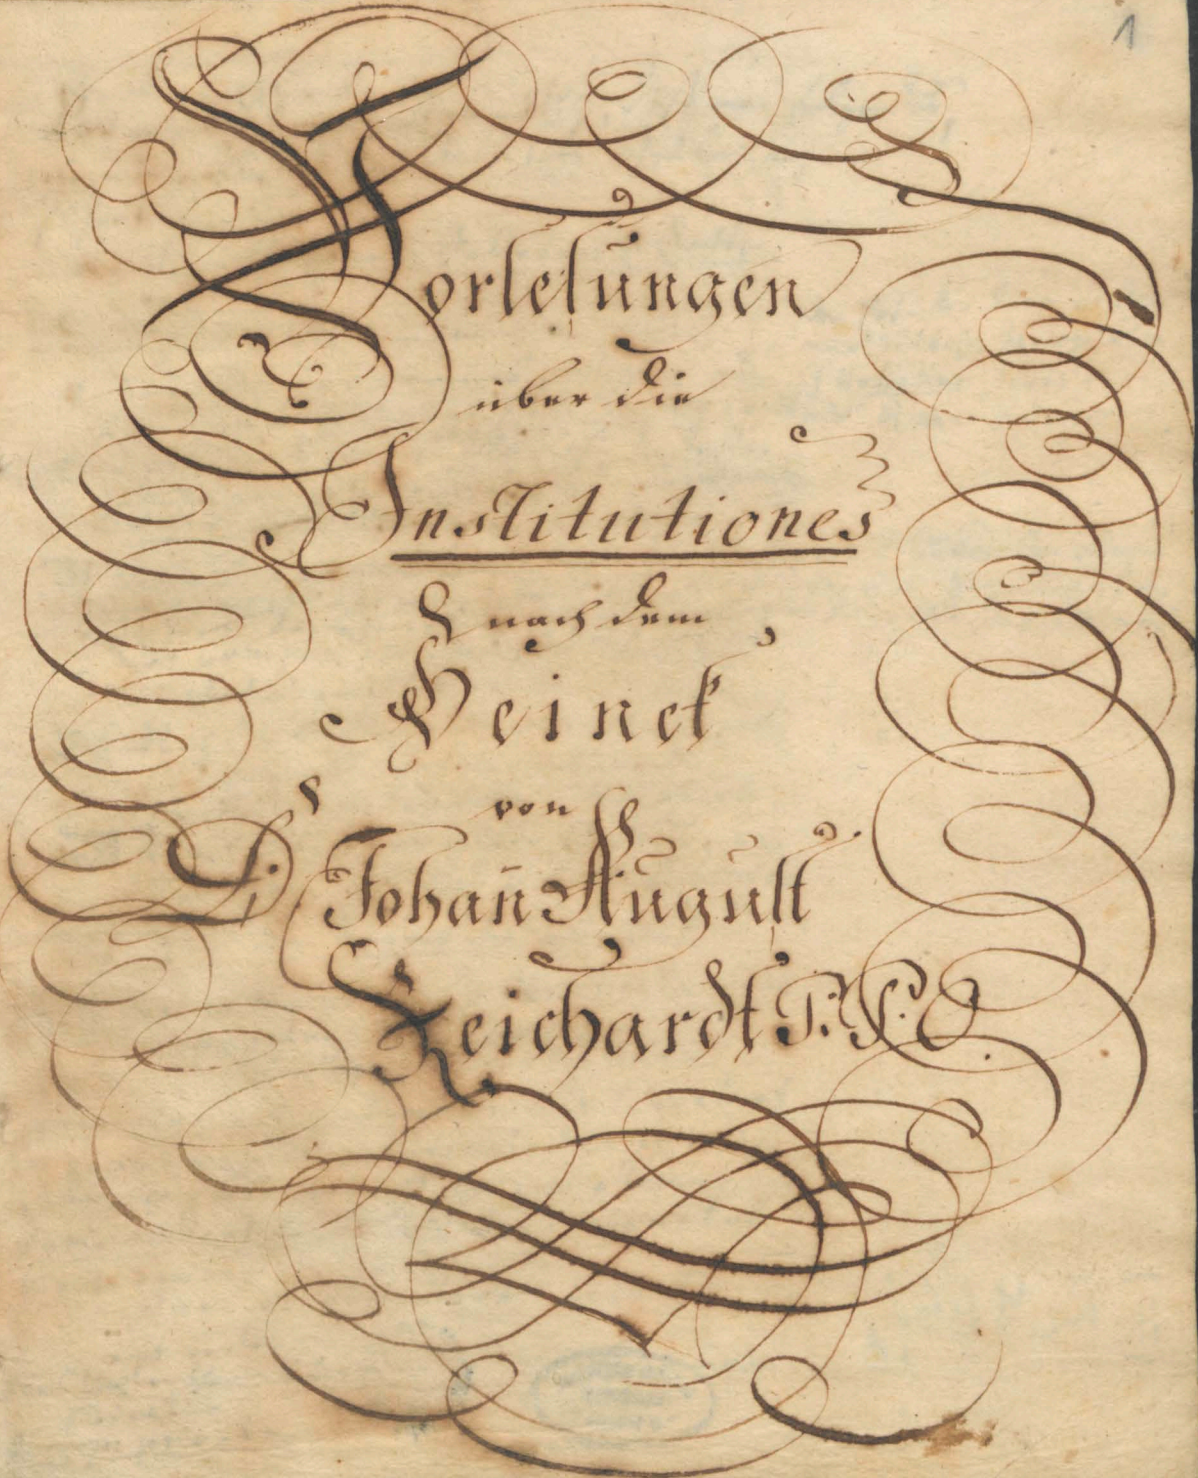 1
Vorlesungen
über die
Institutiones
nach dem
Heinek
von
D. Johan̄ August
Reichardt P. P. O.